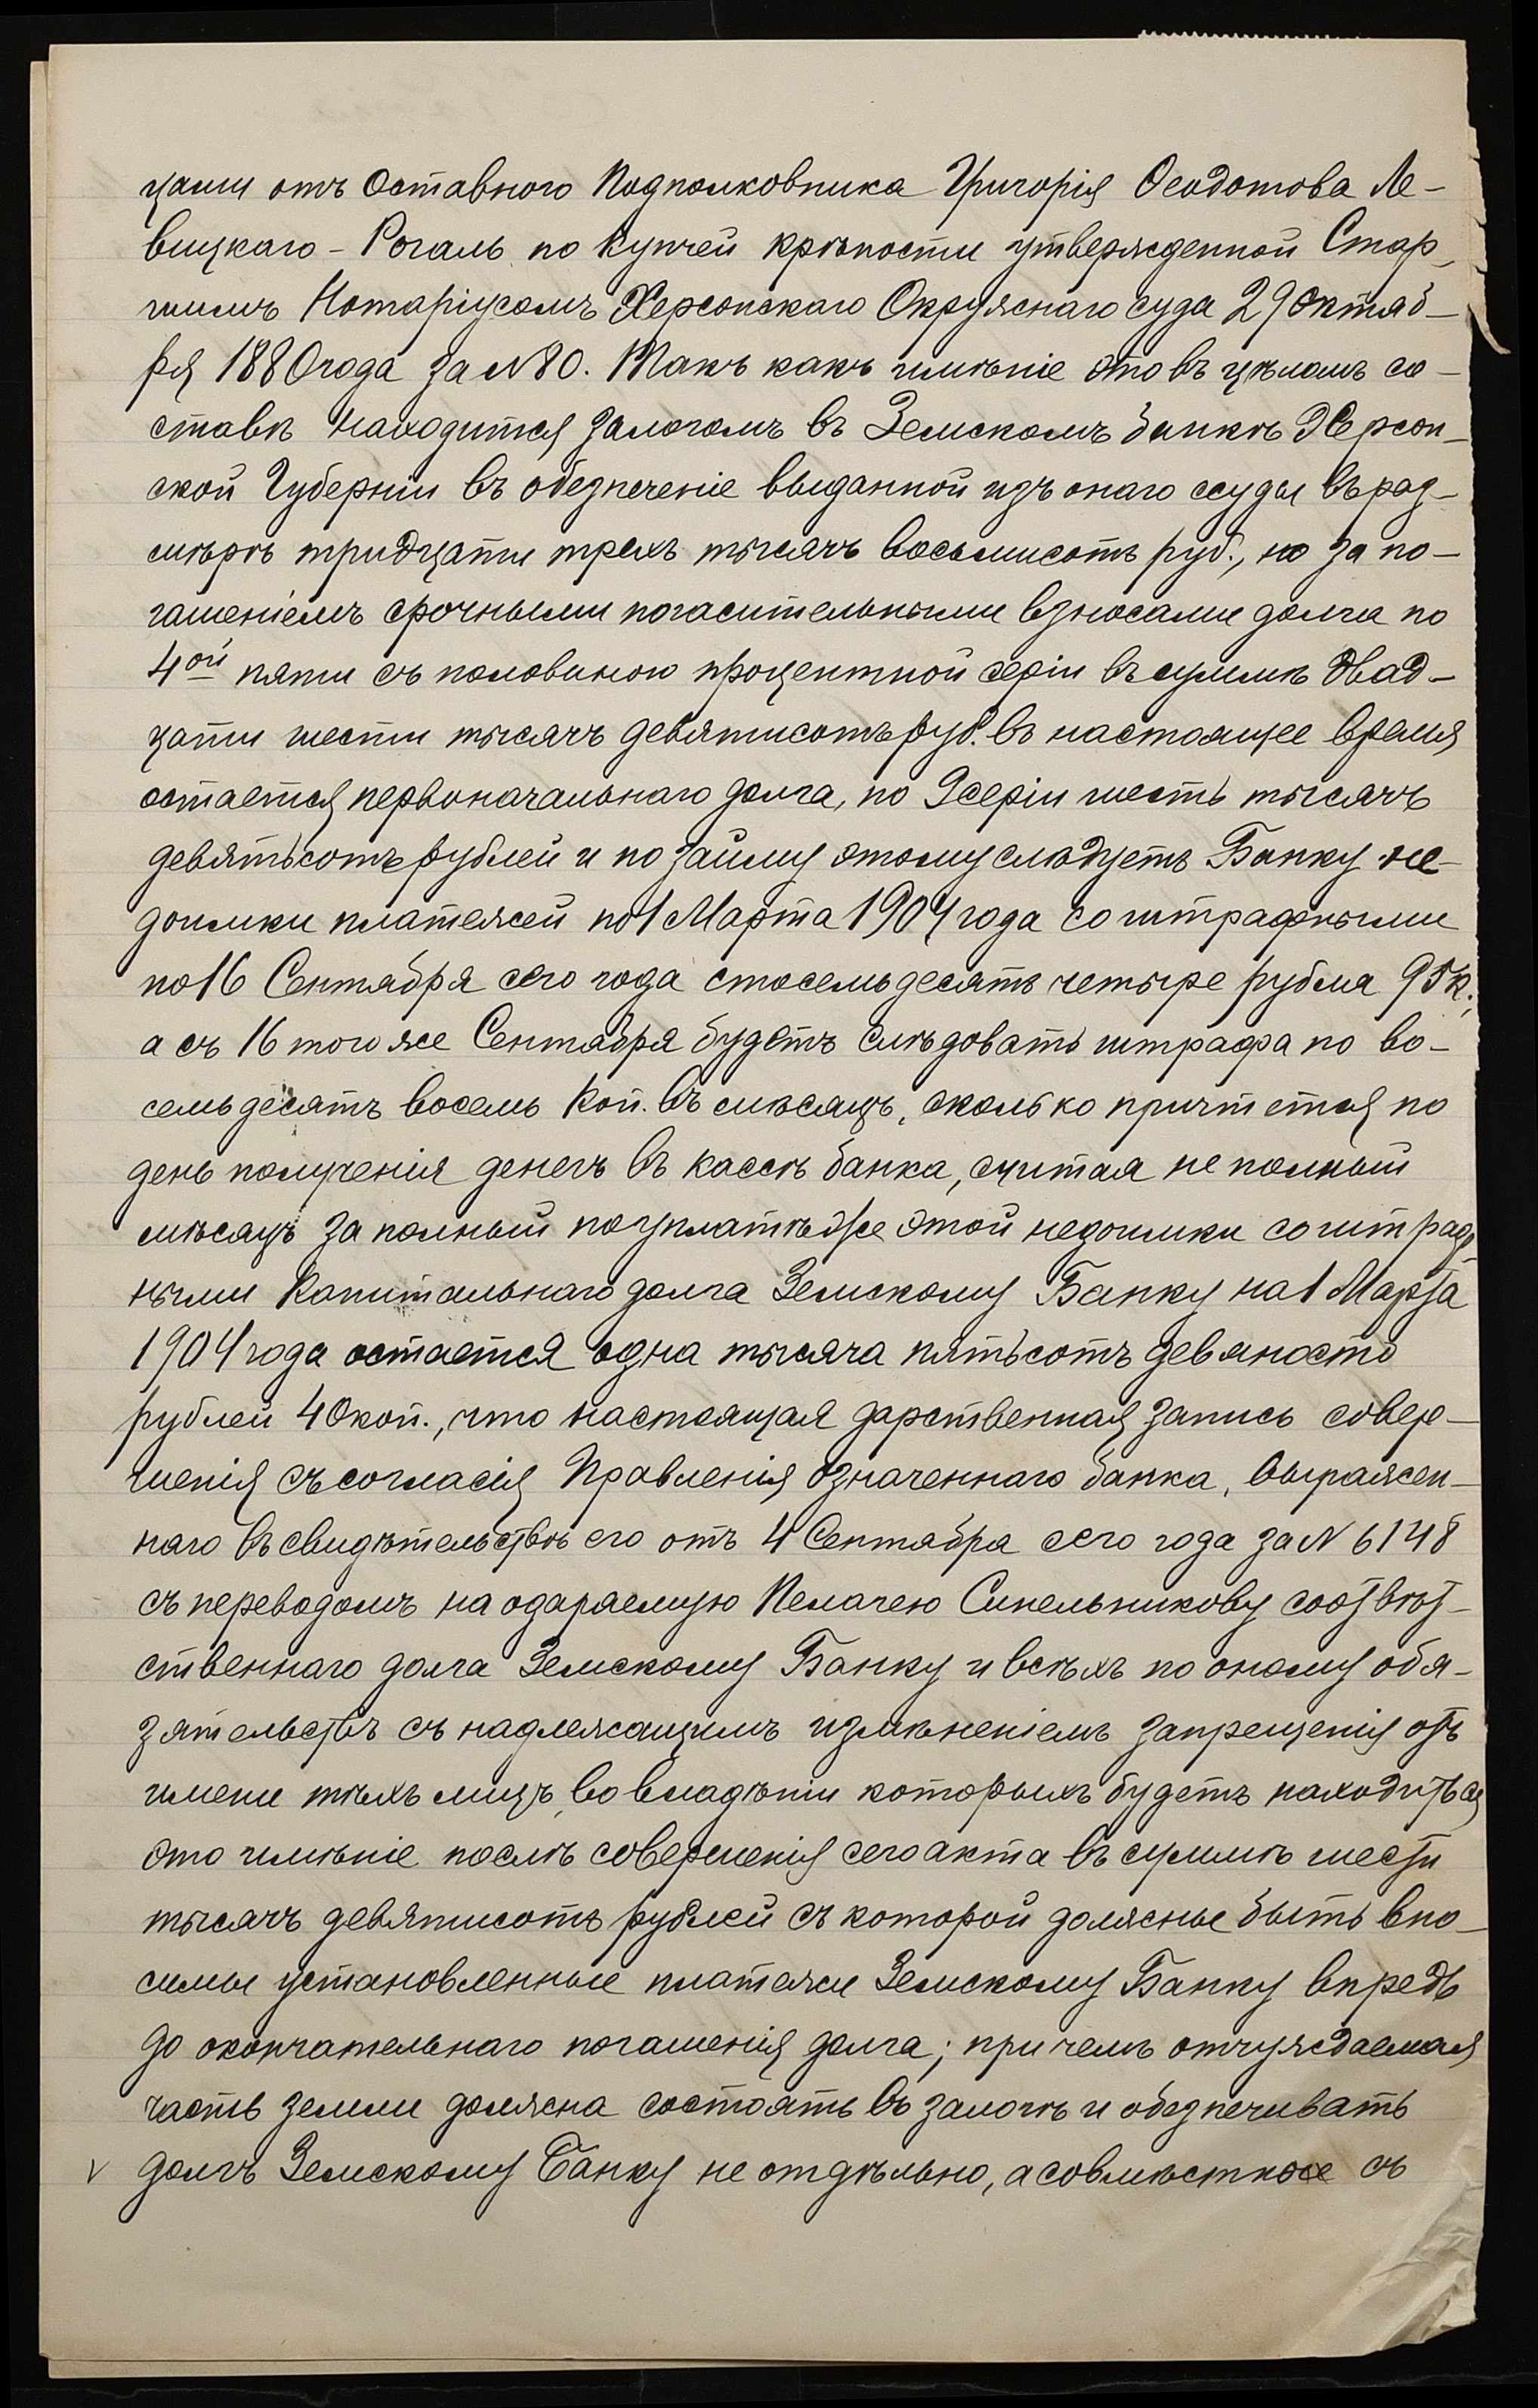 цами отъ Отставного Подполковника Григорія Ѳеодотова Ле-
вицкаго-Рогаль по купчей крѣпости утвержденной Стар-
шимъ Нотаріусомъ Херсонскаго Окружнаго суда 29 октяб-
ря 1880 года за N 80. Такъ какъ имѣніе это въ цѣломъ со-
ставѣ находится залогомъ въ Земскомъ банкѣ Херсон-
ской Губерніи въ обезпеченіе выданной изъ онаго ссуды въ раз-
мѣрѣ тридцати трехъ тысячъ восьмисотъ руб., но за по-
гашеніемъ срочными погасительными взносами долга по
4ой пяти съ половиною процентной серіи въ суммѣ двад-
цати шести тысячъ девятисотъ руб. въ настоящее время
остается первоначальнаго долга, по серіи шесть тысячъ
девятьсотъ рублей и по займу этому слѣдуетъ Банку не-
доимки платежей по 1 Марта 1904 года со штрафными
по 16 Сентября сего года стосемьдесятъ четыре рубля 95 к.,
а съ 16 того же Сентября будетъ слѣдовать штрафа по во-
семьдесятъ восемь коп. въ мѣсяцъ, сколько причтется по
день полученія денегъ въ кассѣ банка, считая не полный
мѣсяцъ за полный по уплатѣ же этой недоимки со штраф-
ными капитальнаго долга Земскому Банку на 1 Марта
1904 года остается одна тысяча пятьсотъ девяносто
рублей 40 коп., что настоящая дарственная запись совер-
шенія съ согласія Правленія означеннаго банка, выражен-
наго въ свидѣтельствѣ его отъ 4 Сентября сего года за N 6148
съ переводомъ на одаряемую Пелагею Синельникову соотвѣт-
ственнаго долга Земскому Банку и всѣхъ по оному обя-
зательствъ съ надлежащимъ измѣненіемъ запрещенія отъ
имени тѣхъ лицъ, во владѣніи которыхъ будетъ находиться
это имѣніе послѣ совершенія сего акта въ суммѣ шести
тысячъ девятисотъ рублей съ которой должны быть вно-
симы установленные платежи Земскому Банку впредь
до окончательнаго погашенія долга; при чемъ отчуждаемая
часть земли должна состоять въ залогѣ и обезпечивать
долгъ Земскому Банку не отдѣльно, а совмѣстное съ